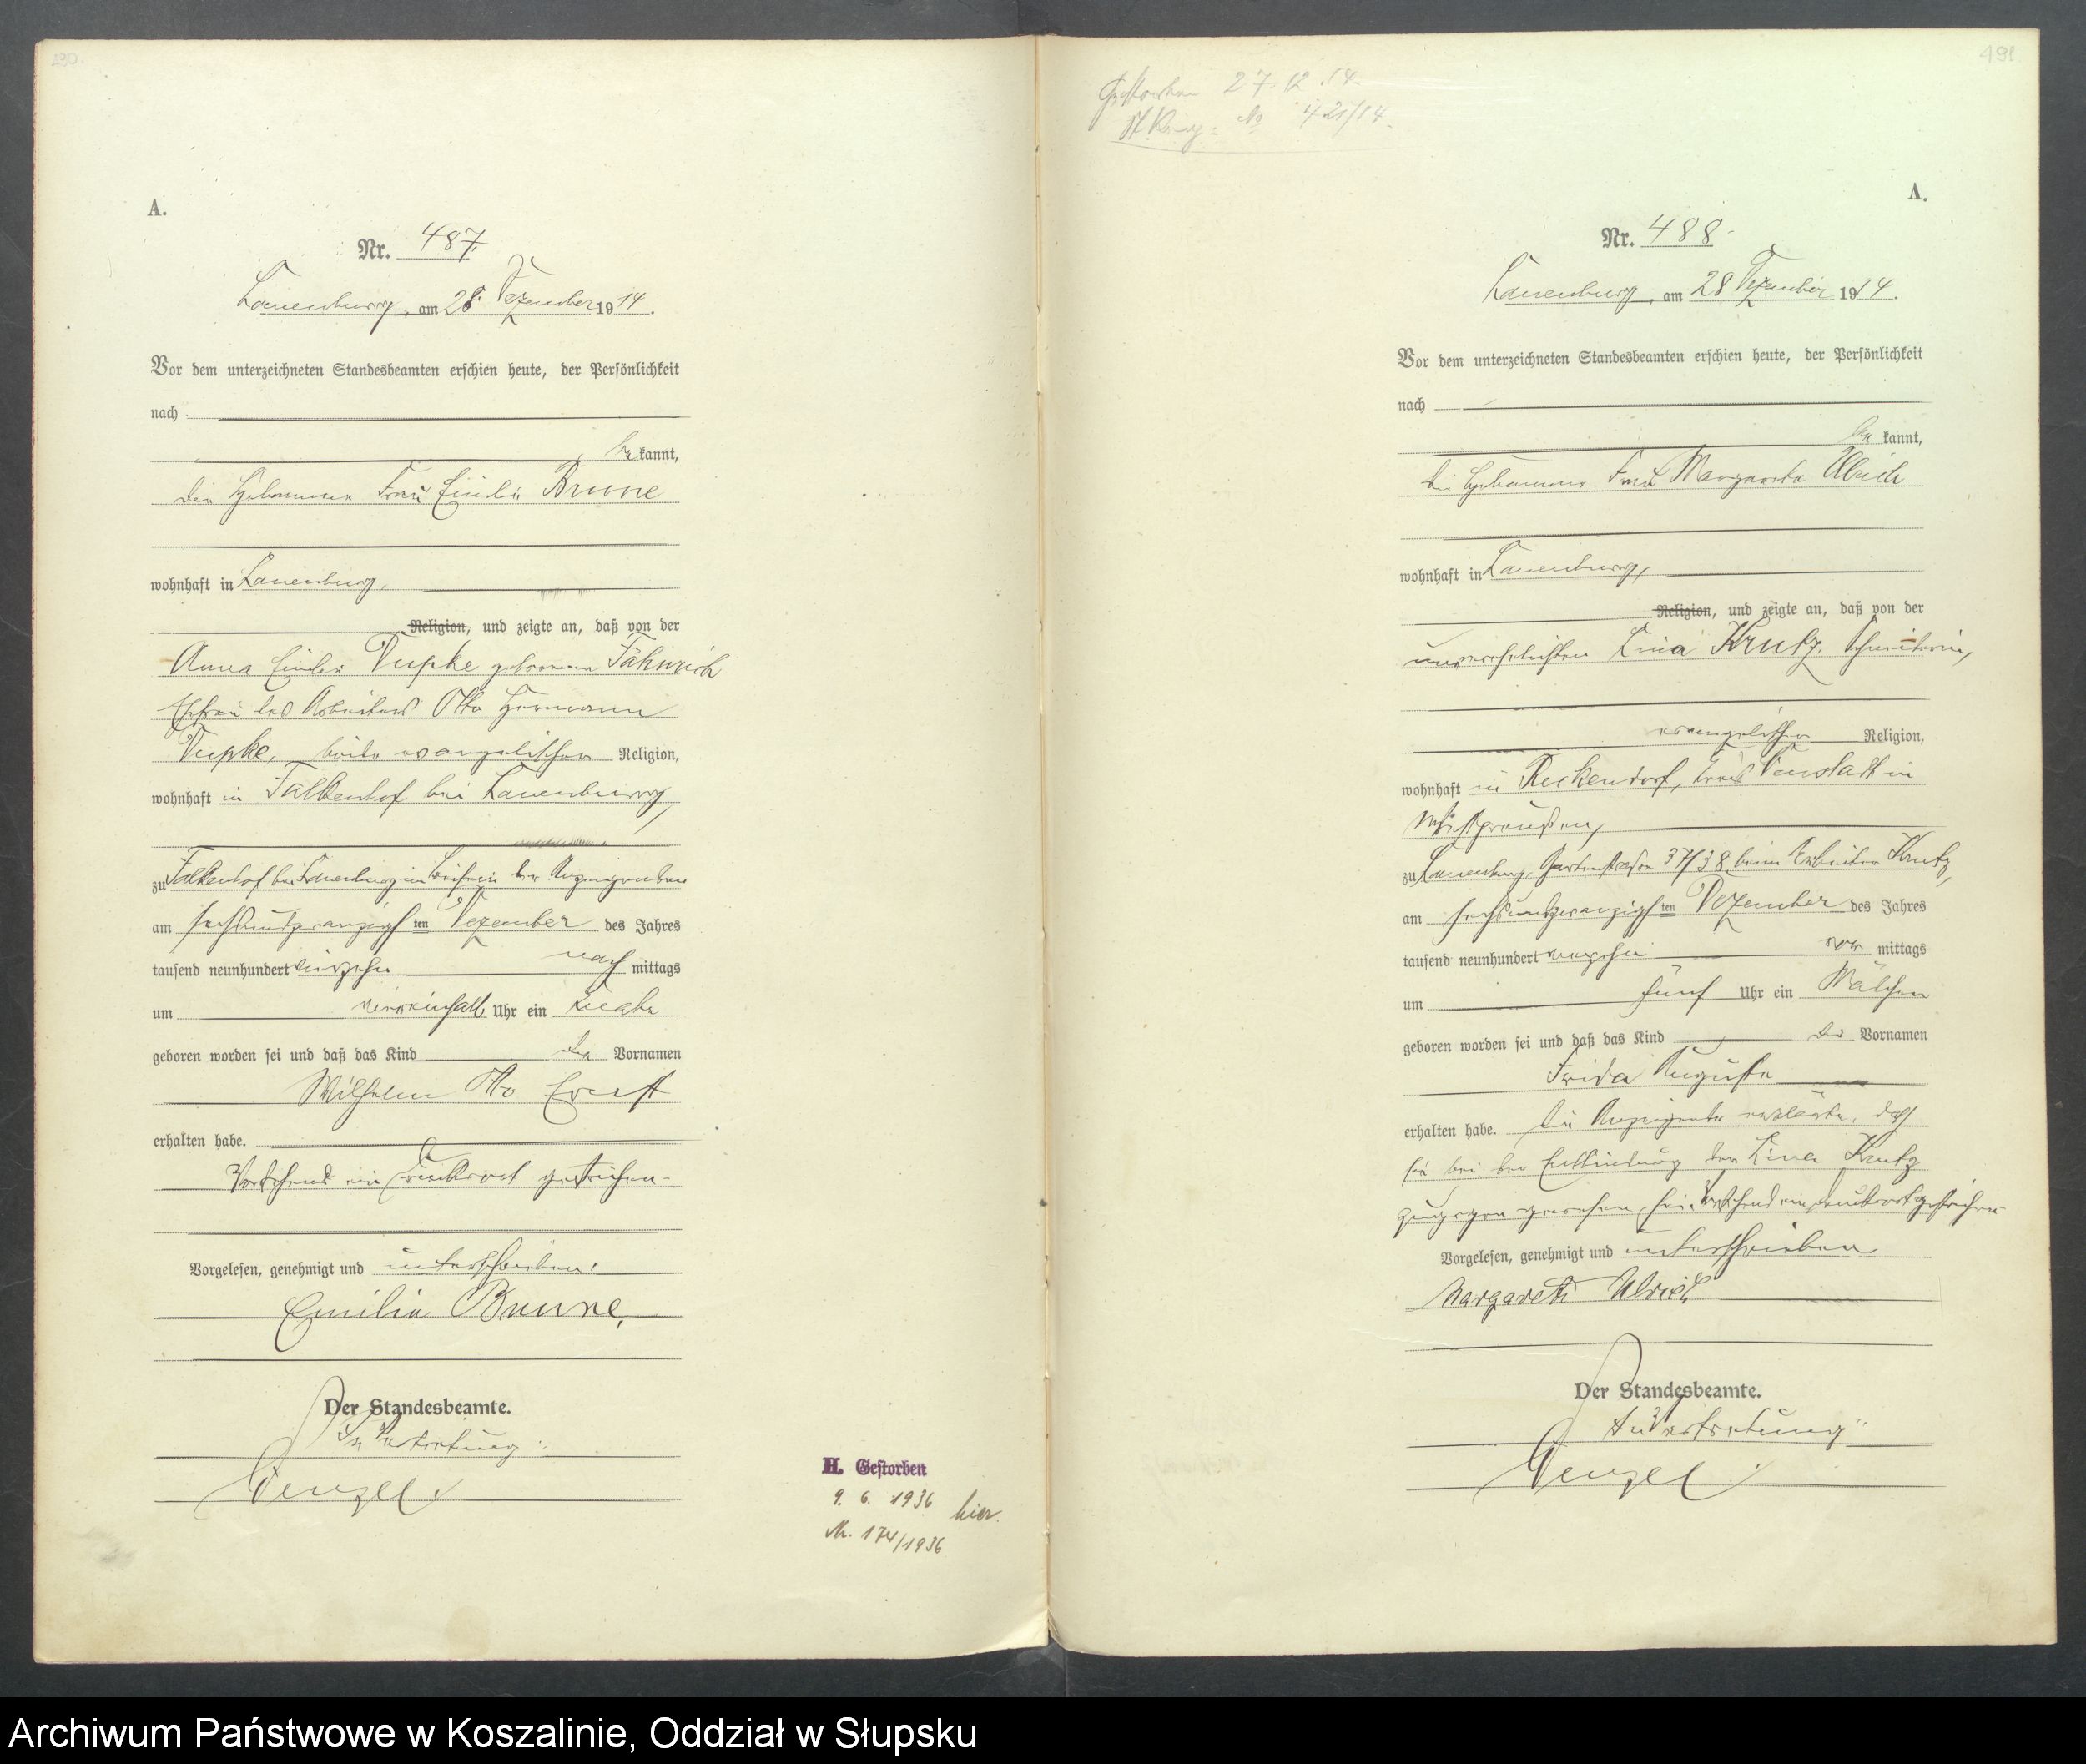 A.
Nr. 487.
Lauenburg, am 28. Dezember 1914.
Vor dem unterzeichneten Standesbeamten erschien heute, der Persönlichkeit
nach
be kannt,
die Hebamme Frau Emilie Brune
wohnhaft in Lauenburg,
Religion, und zeigte an, daß von der
Anna Emilie Dupke geborenen Fähnrich
Ehefrau des Arbeiters Otto Hermann
Dupke, beide evangelischer Religion,
wohnhaft in Falkenhof bei Lauenburg,
zu Falkenhof bei Lauenburg im Beisein der Anzeigenden
am sechsundzwanzigsten Dezember des Jahres
tausend neunhundert vierzehn nach mittags
um viereinhalb Uhr ein Knabe
geboren worden sei und daß das Kind die Vornamen
Wilhelm Otto Ernst
erhalten habe.
Vorstehend ein Druckwort gestrichen.
Vorgelesen, genehmigt und unterschrieben.
Emilie Brune.
Der Standesbeamte.
In Vertretung:
Wenzel.
H. Gestorben
9. 6. 1936 hier.
Nr. 174/1936
491
Gestorben 27 12 14.
No 421/14.
A.
Nr. 488.
Lauenburg, am 28 Dezember 1914.
Vor dem unterzeichneten Standesbeamten erschien heute, der Persönlichkeit
nach
be kannt,
die Hebamme Frau Margarete Ulrich
wohnhaft in Lauenburg,
Religion, und zeigte an, daß von der
unverehelichten Lina Krutz, Schnitterin,
evangelischer Religion,
wohnhaft in Reckendorf, Kreis Neustadt in
Westpreußen,
zu Lauenburg, Gartenstraße 37/38 beim Arbeiter Krutz,
am sechsundzwanzigsten Dezember des Jahres
tausend neunhundert vierzehn vor mittags
um fünf Uhr ein Mädchen
geboren worden sei und daß das Kind die Vornamen
Frida Auguste
erhalten habe. Die Anzeigende erklärte, daß
sie bei der Entbindung der Lina Krutz
zugegen gewesen sei. Vorstehend ein Druckwort gestrichen
Vorgelesen, genehmigt und unterschrieben.
Margarete Ulrich
Der Standesbeamte.
In Vertretung:
Wenzel.
Archiwum Państwowe w Koszalinie, Oddział w Słupsku